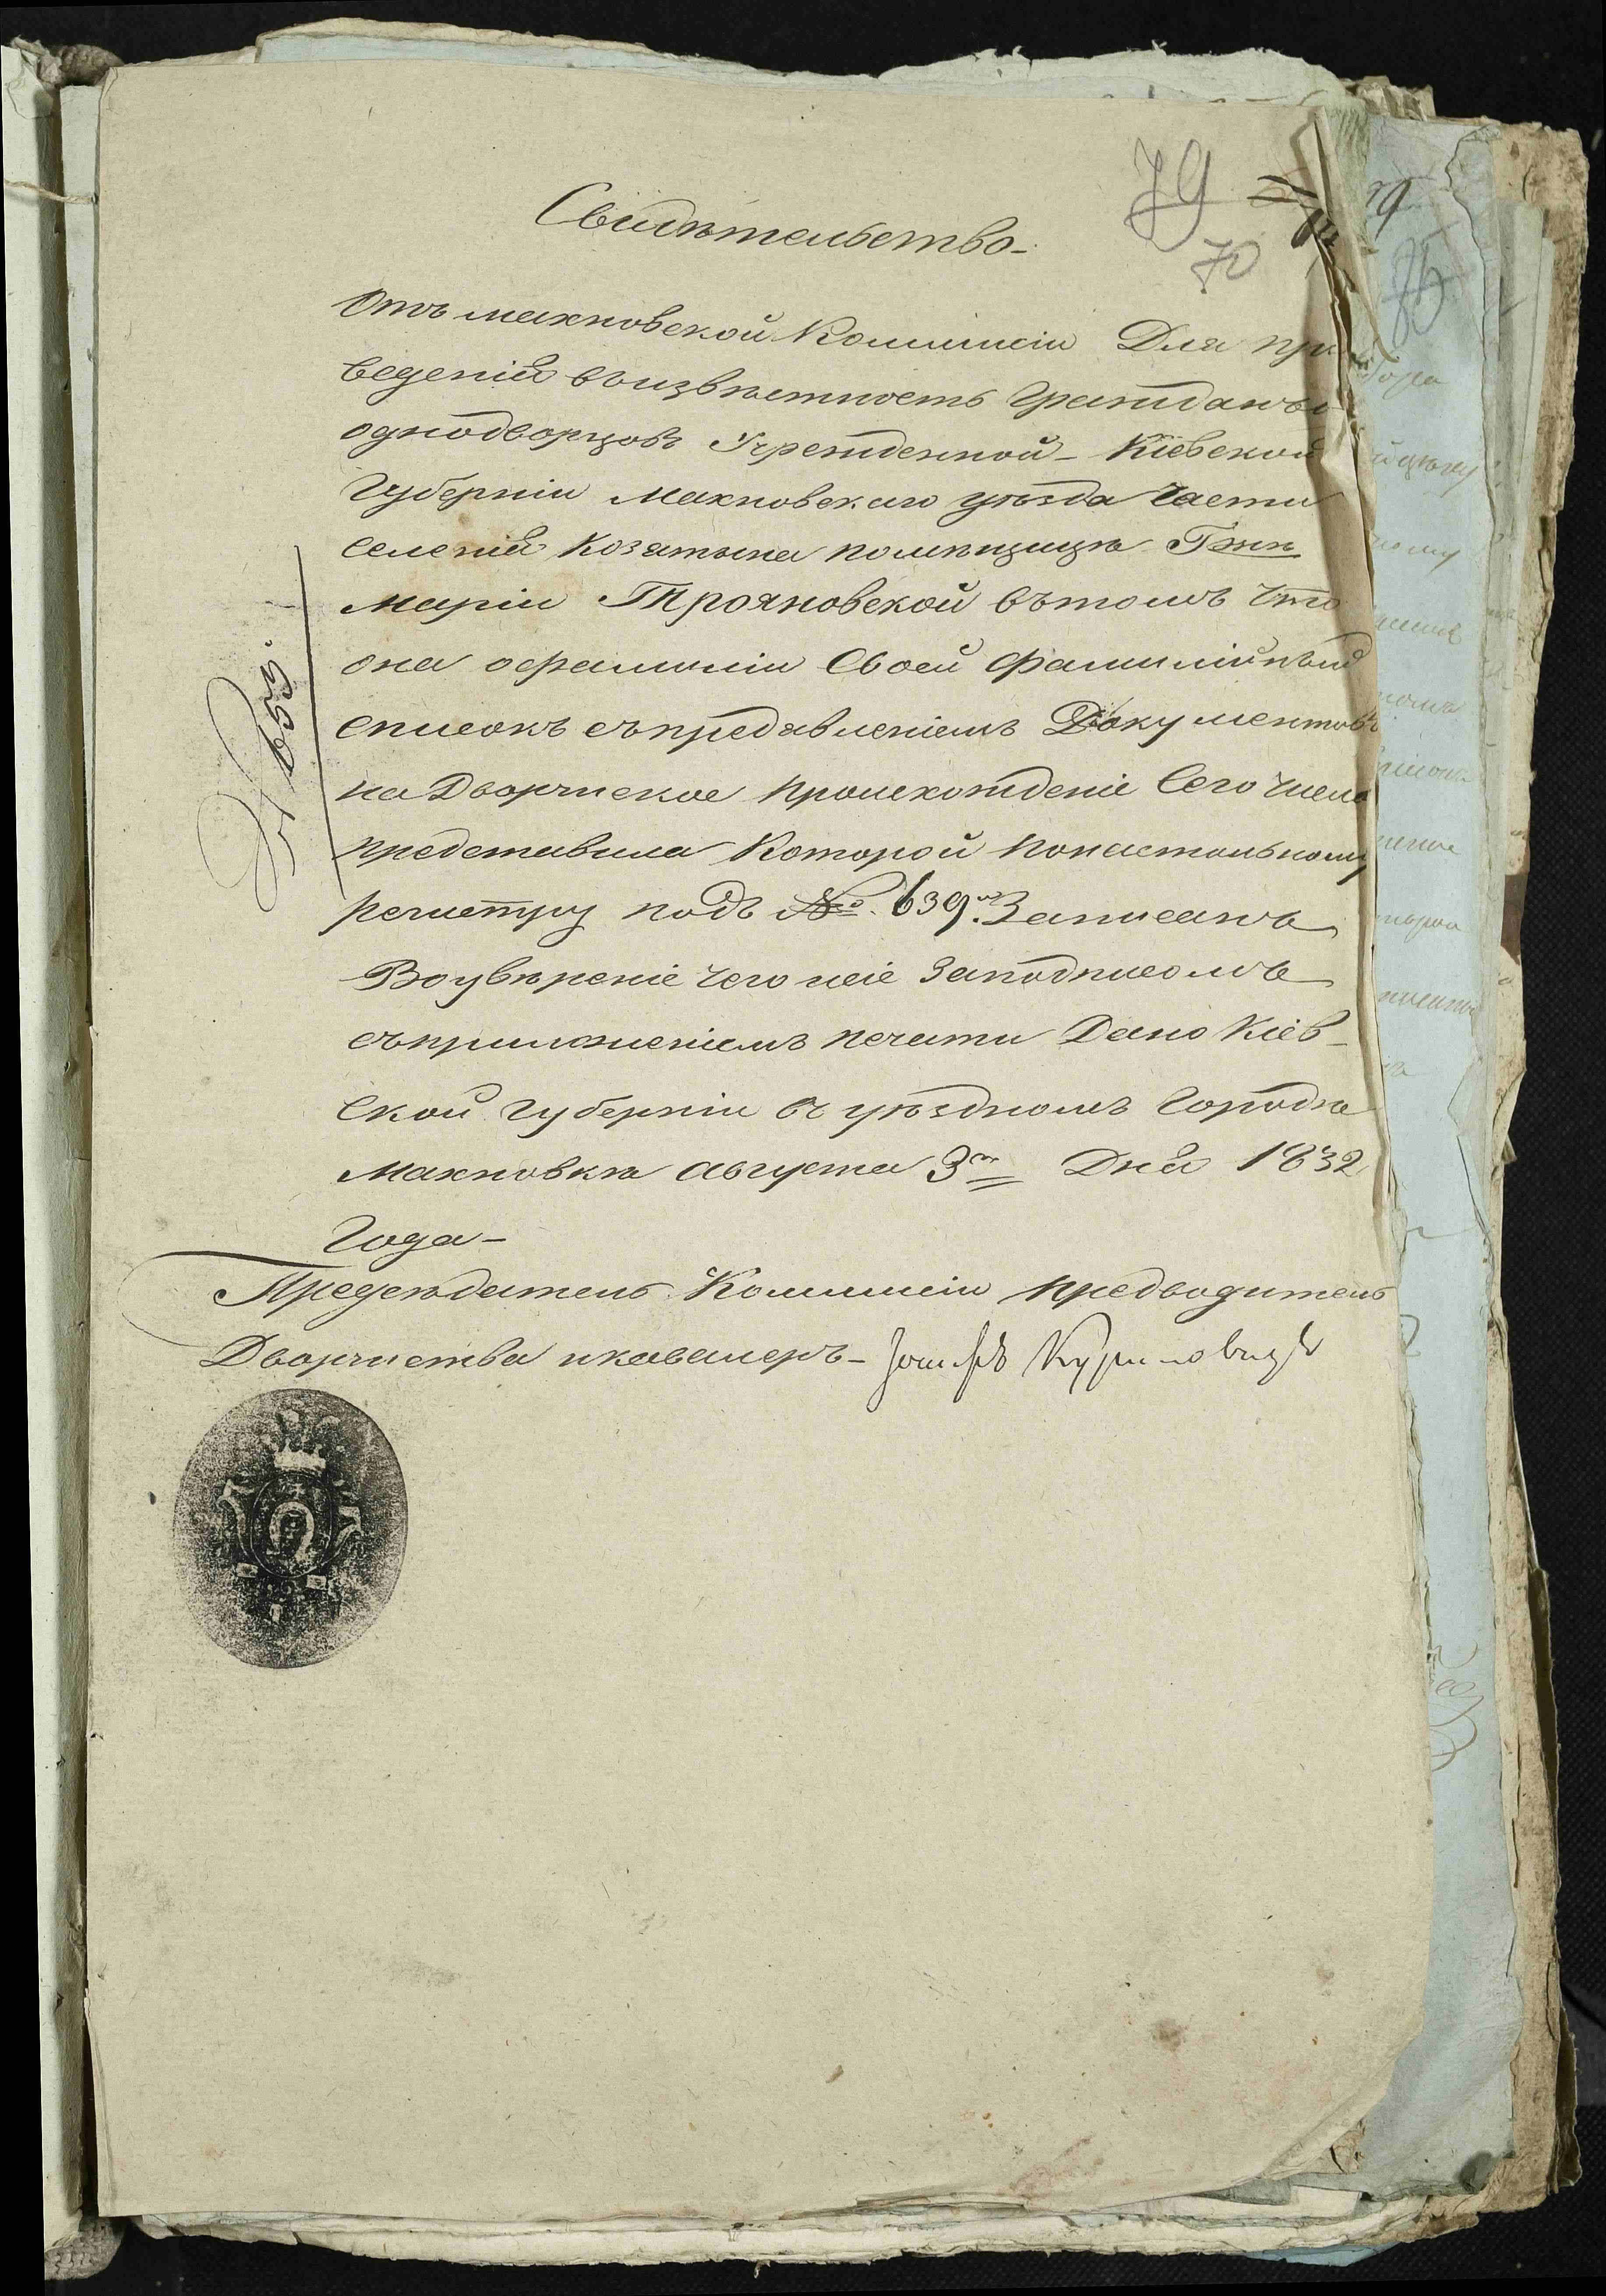 79
70
Свидѣтельство.
Отъ махновской Коммисіи Для при
веденія въизвѣстность Гражданъ и
однодворцовъ Учрежденной - Кіевской
Губерніи Махновскаго уѣзда Части
Селенія Козятына помѣщицѣ Гжѣ
Маріи Трояновской вътомъ Что
она офамиліи Своей Фамилійный
списокъ съпредявленіемъ Документовъ
на Дворянское происхожденіе Сего числа
представила Которой понастольному
регистру подъ № 639мъ Записанъ
Воувѣреніе чего сіе Заподписомъ
съприложеніемъ печати Дано Кіев-
Ской губерніи въ уѣздномъ Городѣ
Махновкѣ августа 3го Дня 1832
Года -
Предсѣдатель Коммисіи предводитель
Дворянства икавалеръ -
№ 639.